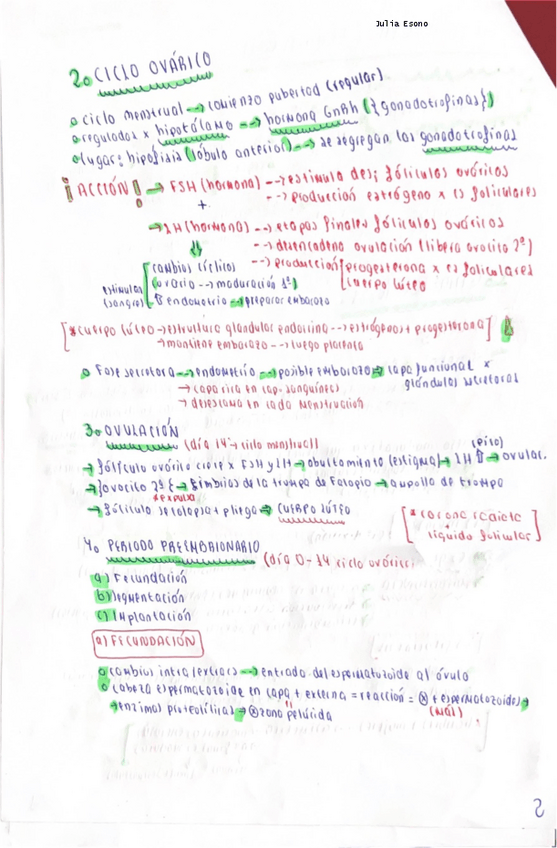 Julia Esono
2. CICLO OVÁRICO
• ciclo menstrual → comienzo pubertad (regular)
• regulados x hipotálamo --> hormona GnRh ({gonadotrofinas})
• lugar: hipófisis (lóbulo anterior) --> se segregan las gonadotrofinas
¡ACCIÓN! → FSH (hormona) --> estimula des; fólículos ováricos
--> producción estrógeno x cs foliculares
+
→ LH (hormona) --> etapas finales fólículos ováricos
--> desencadena ovulación (libera ovocito 2º)
--> producción [progesterona x cs foliculares
cuerpo lúteo
estimulan (sangre) [cambios cíclicos
ovario --> maduración 1º)
endometrio → preparar embarazo
[*cuerpo lúteo → estructura glandular endocrina --> estrógenos + progesterona]
→ mantiene embarazo --> luego placenta
• Fase secretora --> endometrio --> posible embarazo → capa funcional x
glándulas secretoras
→ capa rica en cap. sanguíneos
→ descama en cada menstruación
3. OVULACIÓN
(día 14 → ciclo menstrual)
→ folículo ovárico crece x FSH y LH → abultamiento (estigma) → LH ⇑ (pico) → ovular.
→ ovocito 2º € → fimbrias de la trompa de Falopio → ampolla de trompa
*expulsa
→ folículo se rompe + pliega → CUERPO LÚTEO
[* corona radiata
líquido folicular]
4. PERIODO PREEMBRIONARIO
(día 0-14 ciclo ovárico)
a) Fecundación
b) Segmentación
c) Implantación
a) FECUNDACIÓN
• cambios intra/extracs --> entrada del espermatozoide al óvulo
• cabeza espermatozoide en capa + externa = reacción = ⊗ (+ espermatozoides) →
(más)
→ enzimas proteolíticas → ⊗ zona pelúcida
2